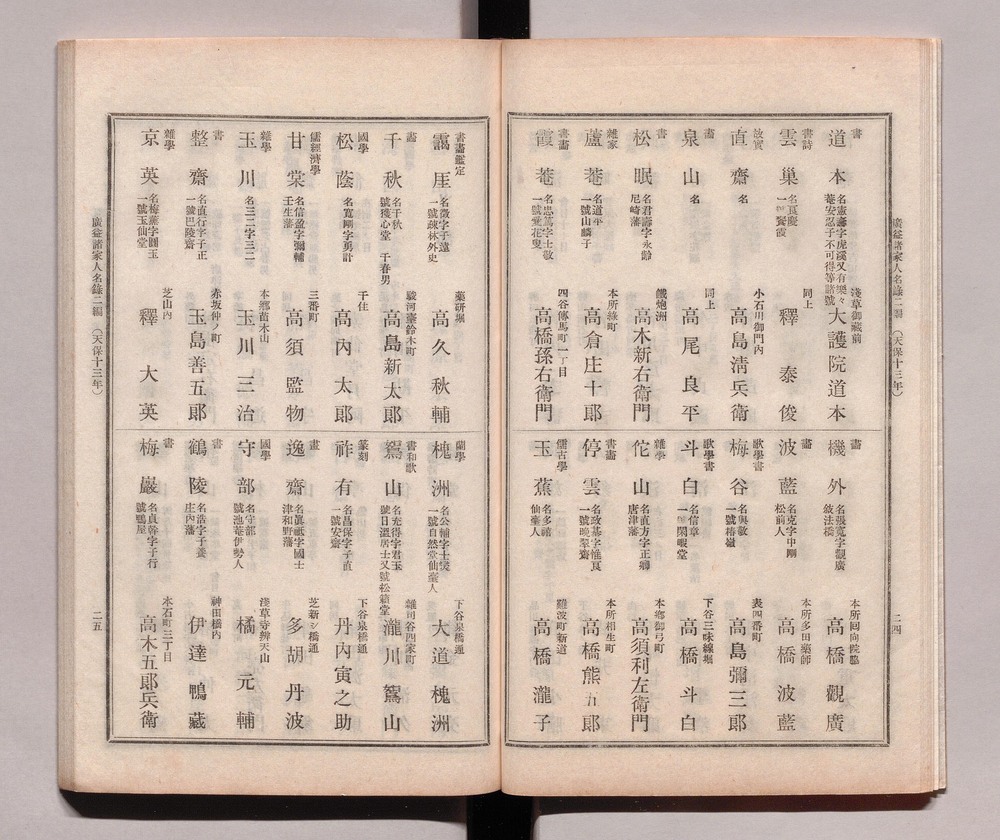 廣益諸家人名錄二編 (天保十三年)
二四
書
道本
名憲壽字虎溪又有樂々
菴安忍子不可得等諸號
淺草御藏前
大護院道本
書詩
雲巢
同上
釋泰俊
直齋
名
小石川御門內
高島淸兵衞
畵
泉山
名
同上
高尾良平
書
松眠
名君壽字永齡
尼崎藩
鐵炮洲
高木新右衞門
雜家
蘆菴
名道平
一號山麟子
本所綠町
高倉庄十郞
書畵
霞菴
名忠篤字士敬
一號愛花叟
四谷傳馬町一丁目
高橋孫右衞門
畵
機外
名張寬字觀廣
敍法橋
本所回向院脇
高橋觀廣
畵
波藍
名克字中剛
松前人
本所多田藥師
高橋波藍
歌學書
梅谷
名與敬
一號椿嶺
表四番町
高島彌三郞
歌學書
斗白
名信章
一號閑暇堂
下谷三味線堀
高橋斗白
雜學
佗山
名直方字正卿
唐津藩
本鄕御弓町
高須利左衞門
書畵
停雲
名政基字惟貫
一號晚翠齋
本所相生町
高橋熊九郞
儒古學
玉蕉
名多祐
仙臺人
難波町新道
高橋瀧子
書畵鑑定
靄厓
名徵字子遠
一號疎林外史
藥硏堀
高久秋輔
畵
千秋
名千秋
號穫心堂 千春男
駿河臺鈴木町
高島新太郞
國學
松蔭
名寬剛字勇計
千住
高內太郞
儒經濟學
甘棠
名信盈字彌輔
壬生藩
三番町
高須監物
雜學
玉川
名三二字三二
本鄕苗木山
玉川三治
書
整齋
名直行字子正
一號巴陵齋
赤坂仲ノ町
玉島善五郞
雜學
京英
名梅蘂字圓玉
一號玉仙堂
芝山內
釋大英
蘭學
槐洲
名公輔字士燮
一號自然堂仙臺人
下谷泉橋通
大道槐洲
書和歌
鴛山
名充得字君玉
號日溫居士又號松籟堂
雜司谷四家町
瀧川鴛山
篆刻
祚有
名昌保字子直
一號安齋
下谷泉橋通
丹內寅之助
畫
逸齋
名眞祗字國士
津和野藩
芝新シ橋通
多胡丹波
國學
守部
名守部
號池菴伊勢人
淺草寺辨天山
橘元輔
書
鶴陵
名浩字子養
庄內藩
神田橋內
伊達鴨藏
書
梅巖
名貞幹字子行
號鴨屋
本石町三丁目
高木五郞兵衞
廣益諸家人名錄二編 (天保十三年)
二五